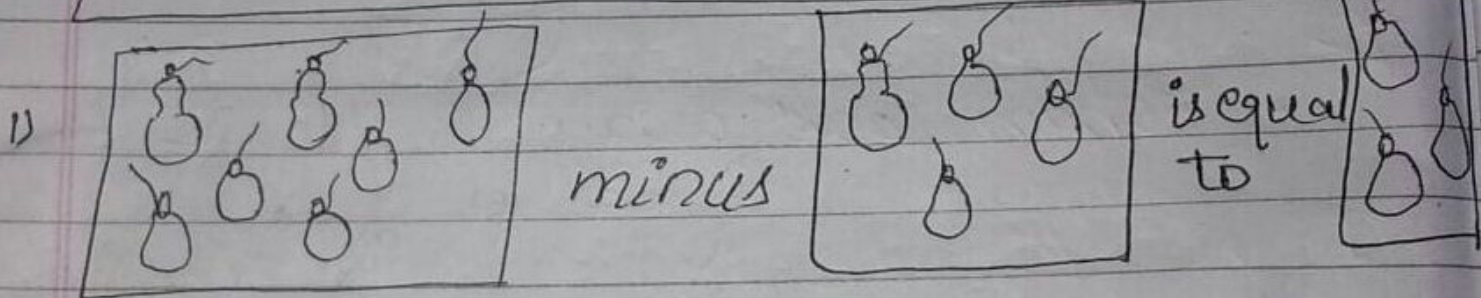 1)
minus
is equal
to